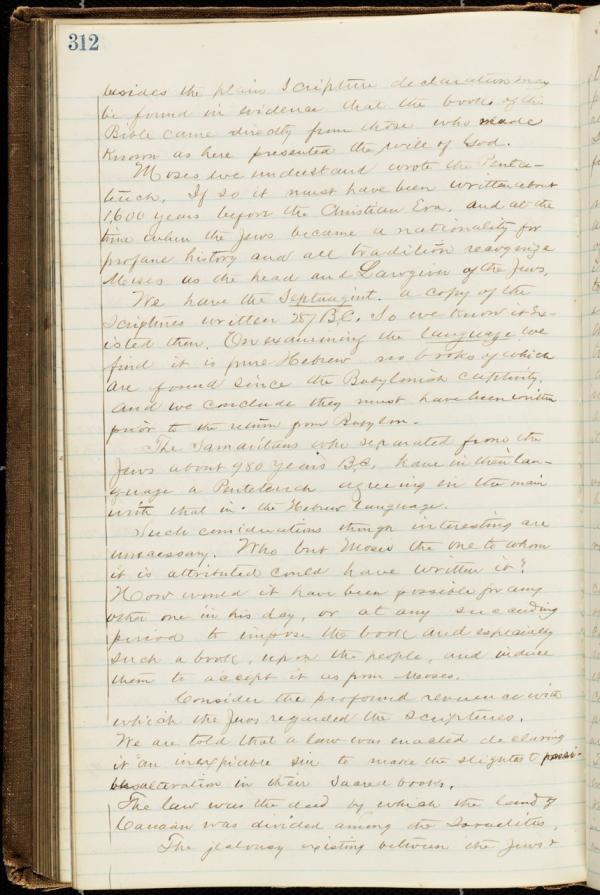 312
besides the plain Scripture declaration may
be found in evidence that the books of the
Bible came directly from those who made
known as here presented the will of God.
Moses we understand wrote the Penta-
teuch. If so it must have been written about
1,600 years before the Christian Era. and at the
time when the Jews became a nationality for
profane history and all tradition recognize
Moses as the head and Lawgiver of the Jews.
We have the Septuagint. a copy of the
Scriptures written 287 B.C. So we know it Ex-
isted then. On examining the language we
find it is pure Hebrew no books of which
are found since the Babylonish captivity.
and we conclude they must have been written
prior to the return from Babylon.
The Samaritans who separated from the
Jews about 980 years B.C. have in their lan-
guage a Pentateuch agreeing in the main
with that in the Hebrew Language.
Such considerations though interesting are
unnecessary. Who but Moses the one to whom
it is attributed could have written it?
How would it have been possible for any
other one in his day, or at any succeeding
period to impose the book and especially
such a book, upon the people, and induce
them to accept it as from Moses.
Consider the profound reverence with
which the Jews regarded the Scriptures.
We are told that a law was enacted declaring
it an inexpiable sin to make the slightest possi-
ble alteration in their Sacred books.
The law was the deed by which the land of
Canaan was divided among the Israelites.
The jealousy existing between the Jews &